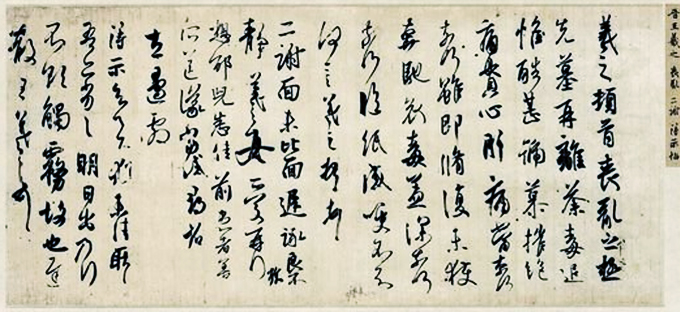 晉王羲之 喪亂 二謝 得示帖
羲之頓首喪亂之極
先墓再離荼毒追
惟酷甚號慕摧絕
痛貫心肝痛當奈何
奈何雖即脩復未獲
奔馳哀毒益深奈何
奈何臨紙感哽不知
何言羲之頓首頓首
二謝面未比面遲詠良
不靜羲之女愛再拜
想邵兒悉佳前患者善
所送議當試尋省
左邊劇
得示知足下猶未佳耿耿
吾亦劣劣明日出乃行
不欲觸霧故也遲
散王羲之頓首